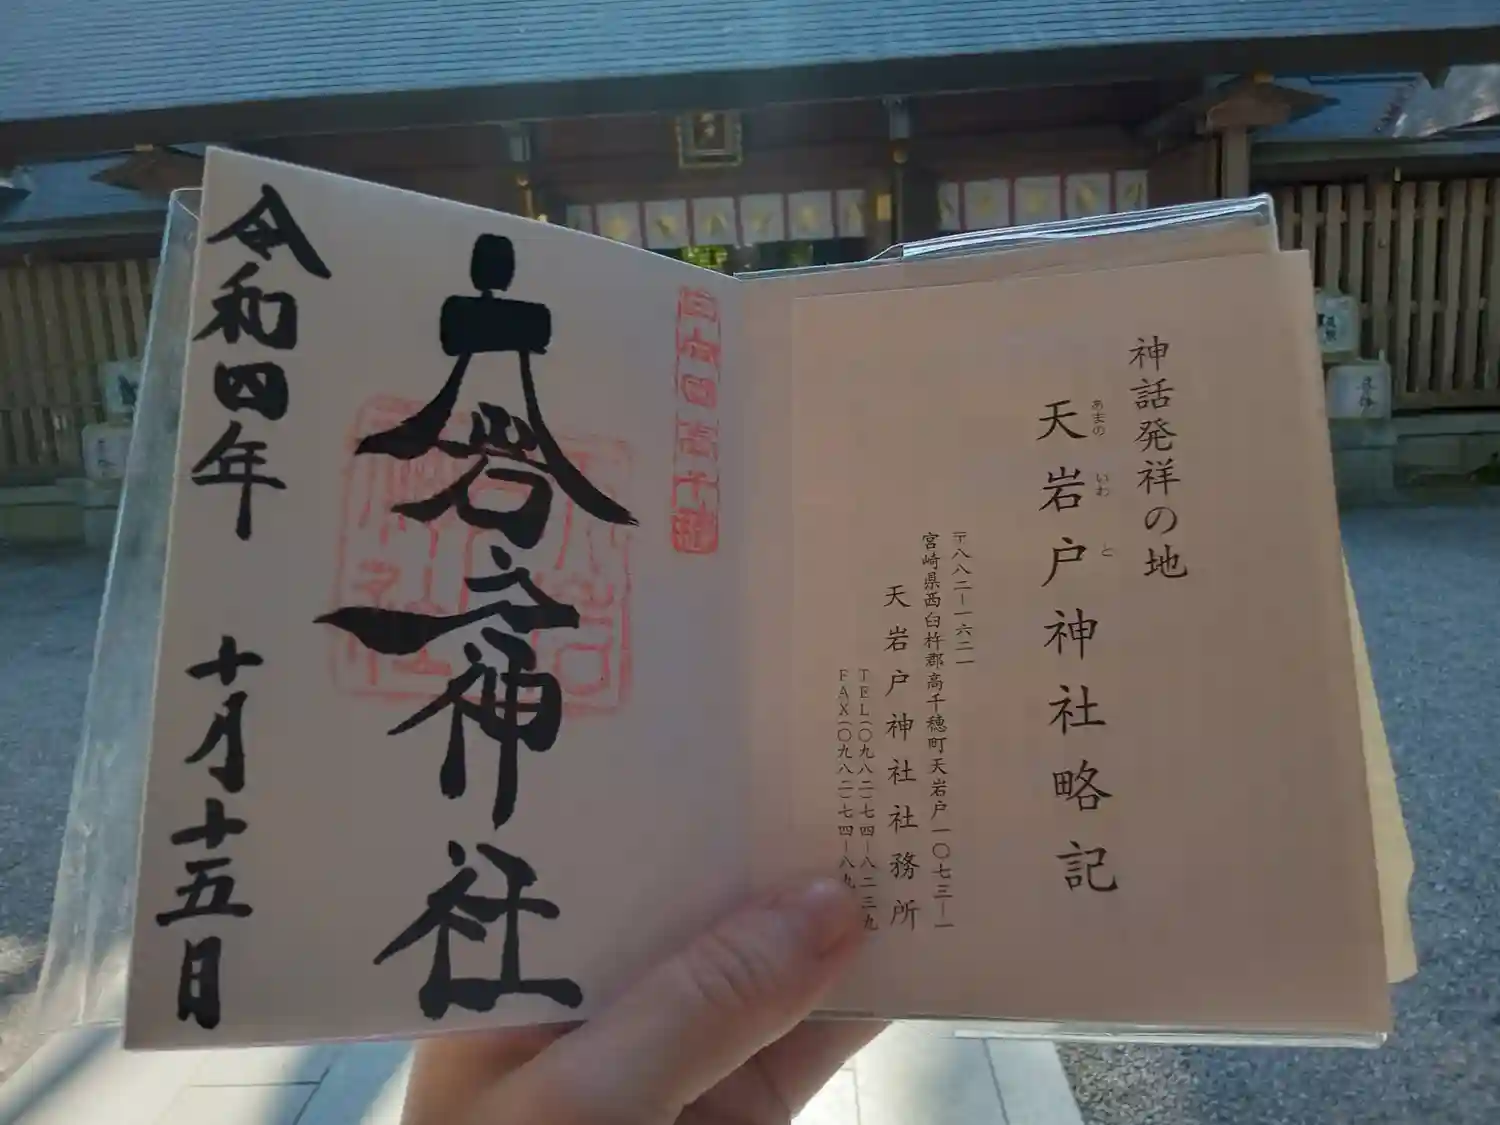 神話発祥の地
天岩戸神社略記
あまの いわ と
〒八八二ー一六二一
宮崎県西臼杵郡高千穂町天岩戸一〇七三ー一
天岩戸神社社務所
TEL(〇九八二)七四ー八二三九
FAX(〇九八二)七四ー八九
日向国高千穂
天岩戸神社
令和四年 十月十五日